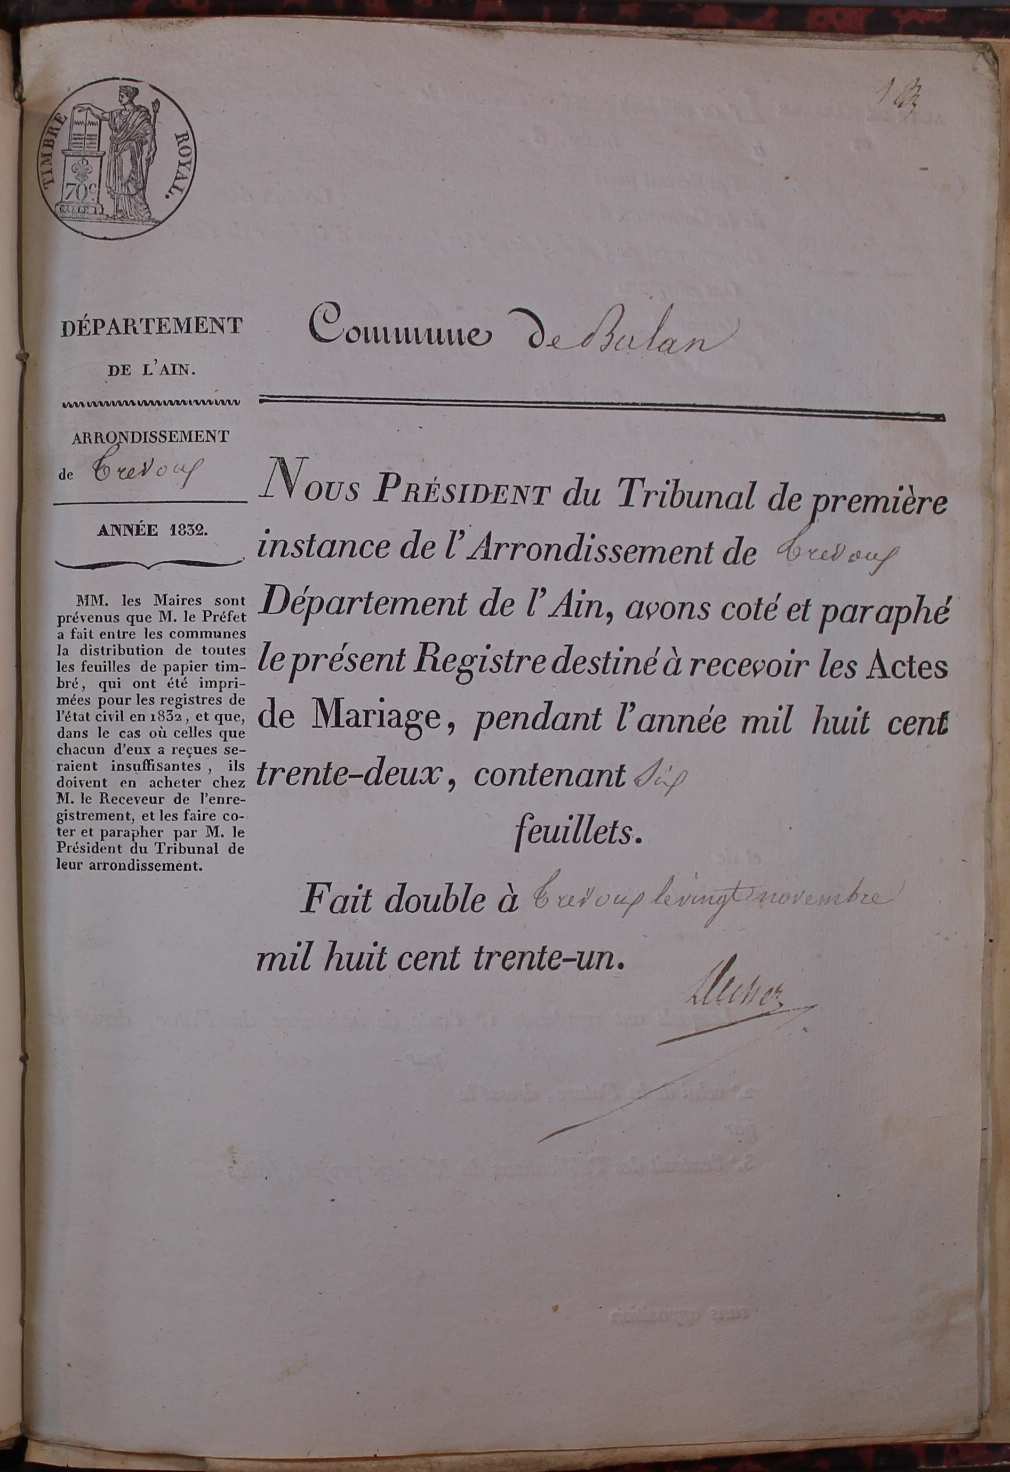 TIMBRE ROYAL.
70c
DÉPARTEMENT
DE L'AIN.
ARRONDISSEMENT
de Trevoux
ANNÉE 1832.
MM. les Maires sont
prévenus que M. le Préfet
a fait entre les communes
la distribution de toutes
les feuilles de papier tim-
bré, qui ont été impri-
mées pour les registres de
l'état civil en 1832, et que,
dans le cas où celles que
chacun d'eux a reçues se-
raient insuffisantes, ils
doivent en acheter chez
M. le Receveur de l'enre-
gistrement, et les faire co-
ter et parapher par M. le
Président du Tribunal de
leur arrondissement.
Commune De Balan
NOUS PRÉSIDENT du Tribunal de première
instance de l'Arrondissement de Trevoux
Département de l'Ain, avons coté et paraphé
le présent Registre destiné à recevoir les Actes
de Mariage, pendant l'année mil huit cent
trente-deux, contenant Six
feuillets.
Fait double à Trevoux le vingt novembre
mil huit cent trente-un.